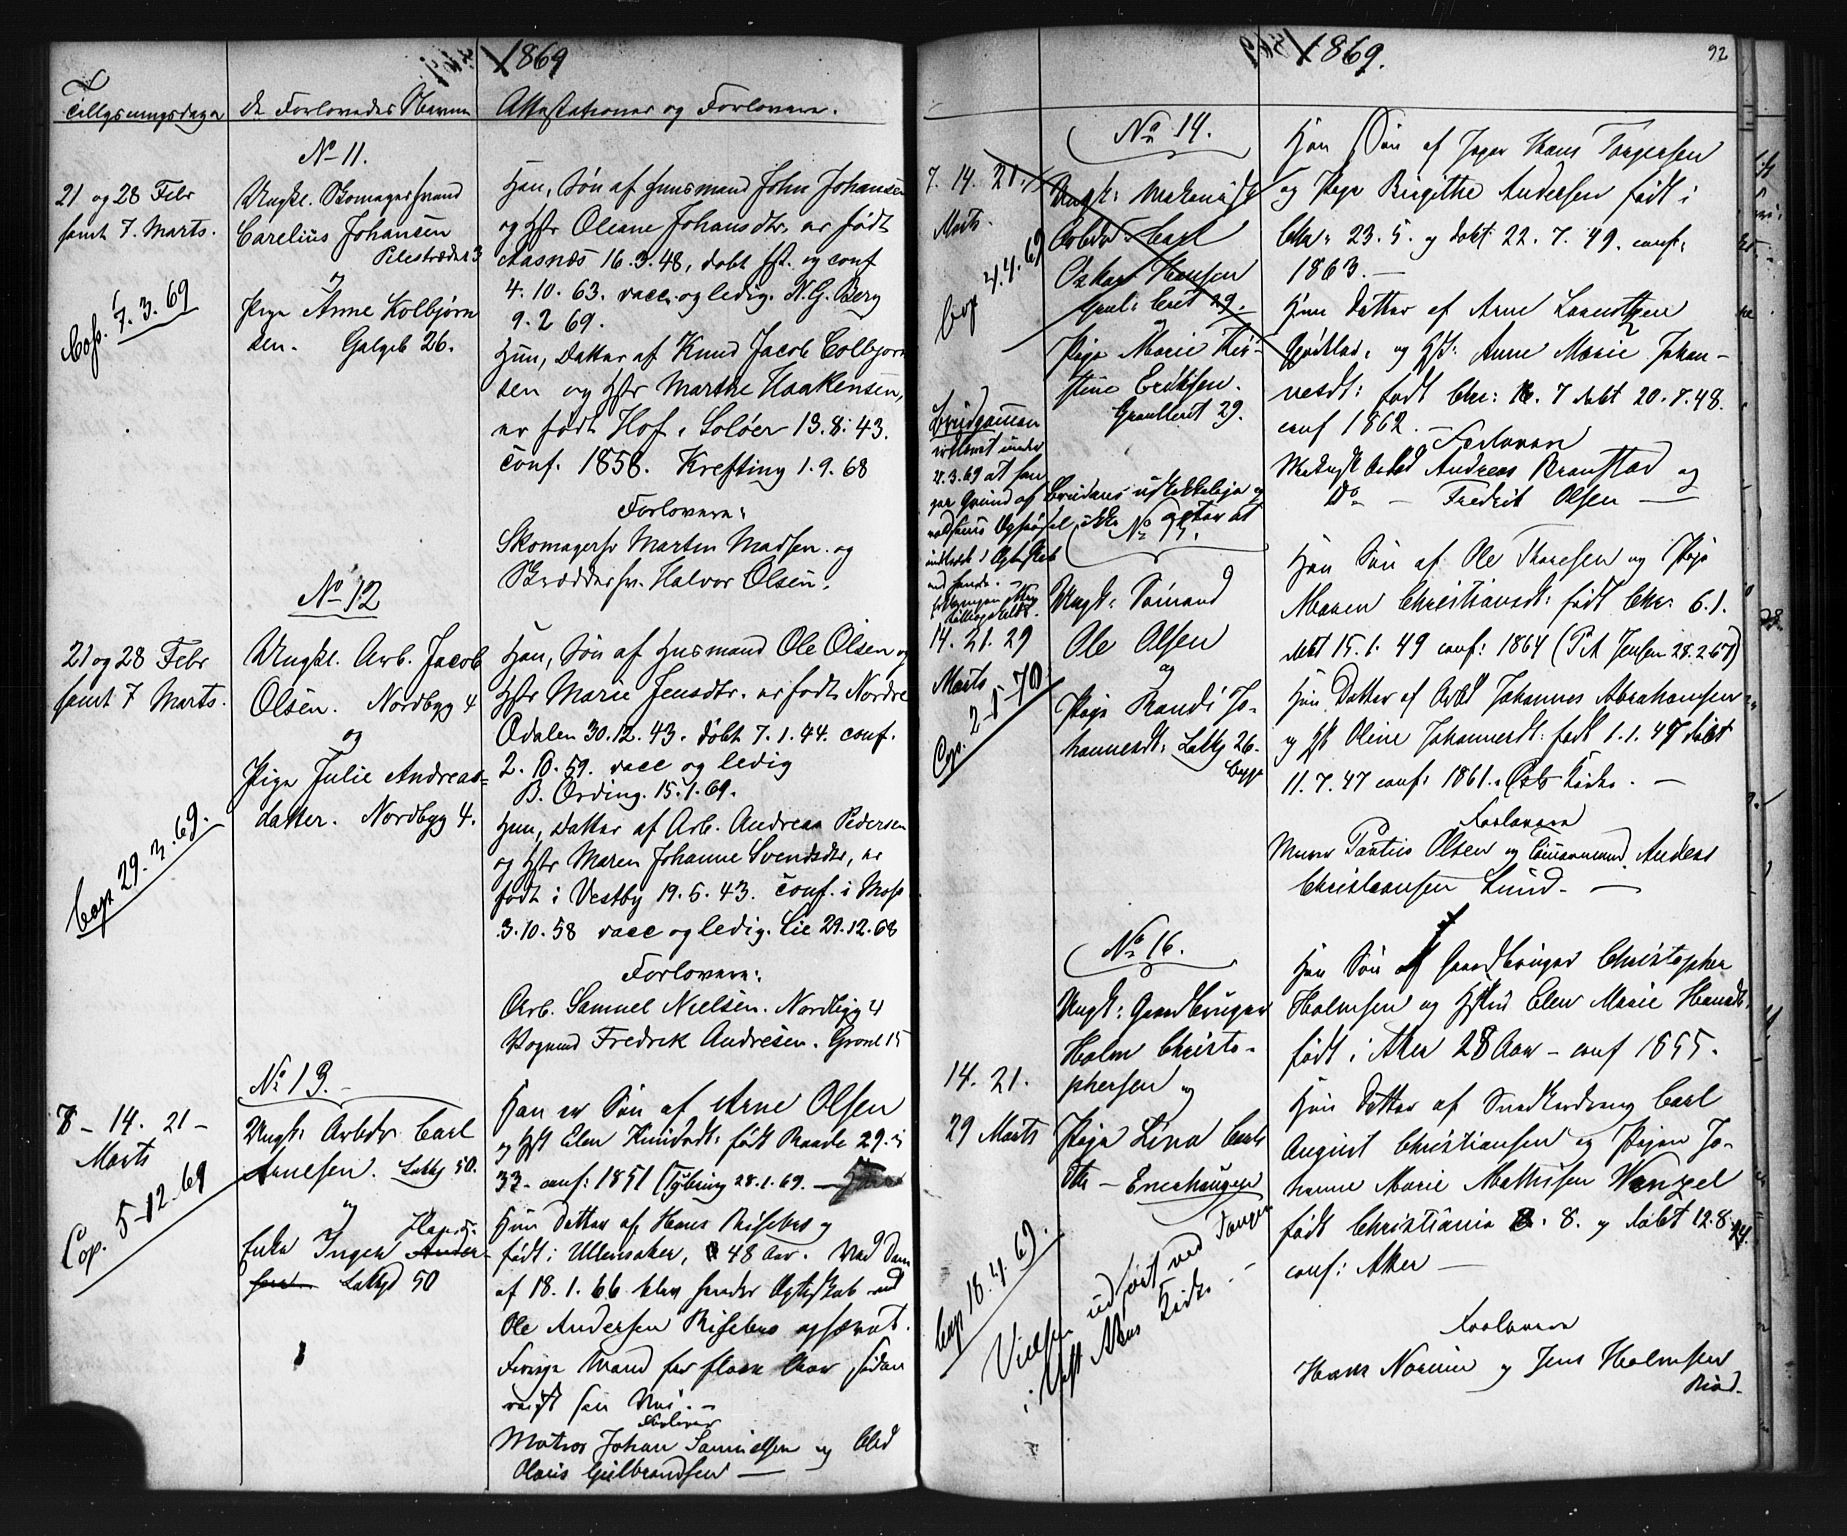 1869
Tillysningsdage De Forlovedes Navne Attestationer og Forlovere.
No 11.
21 og 28 Febr
samt 7. Marts.
Cop. 7. 3. 69
Ungkl. Skomagersvend
Carelius Johansen
Pilestrædet 3
og
Pige Anne Kolbjørn
sen. Galgeb 26.
Han, Søn af Husmand John Johansen
og Hstr Oleane Johansdtr, er født
Aasnæs 16. 3. 48, døbt st. og conf
4. 10. 63. vacc. og ledig. N. G. Berg
9. 2 69.
Hun, Datter af Knud Jacob Colbjørn
sen og Hstr Marthe Haakensen,
er født Hof i Soløer 13. 8. 43.
conf. 1858. Krefting 1. 9. 68
Forlovere:
Skomagersv Martin Madsen og
Skræddersv. Halvor Olsen.
No 12
21 og 28 Febr
samt 7 Marts.
Cop 29. 3. 69.
Ungkl. Arb. Jacob
Olsen. Nordbyg 4
og
Pige Julie Andreas-
datter. Nordbyg 4.
Han, Søn af Husmand Ole Olsen og
Hstr Marie Jensdtr. er født Nordre
Odalen 30. 12. 43. døbt 7. 1. 44. conf.
2. 10. 59. vacc og ledig
B. Ording. 15. 1. 69.
Hun, Datter af Arb. Andreas Pedersen
og Hstr Maren Johanne Svendsdtr, er
født i Vestby 19. 5. 43. conf. i Moss
3. 10. 58 vacc og ledig. Lie 29. 12. 68
Forlovere:
Arb. Samuel Nielsen. Nordbygg 4
Vognmd Fredrik Andresen. Grønl 15
No 13.
8 - 14. 21 -
Marts
Cop. 5-12-69
Ungk: Arbdr Carl
Arnesen. Lakkg 50.
og
Enke Inger Hansd:
Ander-
sen Lakkgd 50
Han er Søn af Arne Olsen
og Hst Elen Knudsdt: født Raade 29.
33 - conf: 1851 (Tybring 28. 1. 69.
Hun Datter af Hans Risebro og
født i Ullensaker, 48 Aar. Ved Dom
af 18. 1. 66 blev hendes Ægteskab med
Ole Andersen Risebro ophævet.
Forrige Mand for flere Aar siden
reist sin Vei. -
Forlover
Matros Johan Samuelsen og Arbd
Olaus Gulbrandsen
1869.
92
No 14.
7. 14. 21.
Marts.
Cop 4. 4. 69
Ungk:
Arbdr Carl
Oskar Hansen
29.
Pige Marie Kir-
stine Eriksen.
29.
Han Søn af Jæger Hans Torgersen
og Pige Birgithe Andersen født i
Chr: 23. 5. og døbt 22. 7. 49. conf:
1863. -
Hun Datter af Arne Larentsen
og Hst: Anne Marie Johan-
nesdt: født Chr: 16. 7 døbt 20. 8. 48.
conf 1862. -
Forlovere
Andreas Branstad og
Do - Fredrik Olsen
Brudgommen
erklæret under
3. 69 at han
paa Grund af Brudens
Opførsel ikke agter at
indtræde i Ægteskab
med hende. -
No 15.
14. 21. 29
Marts
Cop. 2-5-70
Ungk: Sømand
Ole Olsen
og
Pige Randi Jo-
hannesdt: Lakkg 26.
Bygg
Han Søn af Ole Thoresen og Pige
Maren Christiansdt: født Chr: 6. 1.
døbt 15. 1. 49 conf: 1864 (P. A. Jensen 28. 2. 67)
Hun Datter af Arbd Johannes Abrahamsen
og Hst Oline Johannesdt: født 1. 1. 47 døbt
11. 7. 47 conf: 1861. Oslo Kirke. -
Forlovere
Murer Paulus Olsen og Tømmermand Anders
Christiansen Lund. -
No 16.
14. 21.
29 Marts
Cop 18. 4. 69.
Ungk: Gaardbruger
Holm Christo-
phersen og
Pige Lina Carls
dtr - Enerhaugen
Vielsen udført ved Tangen
i Vest Akers Kirke -
Han Søn af Gaardbruger Christopher
Holmsen og Hstru Elen Marie Hansdt.
født i Aker 28 Aar - conf 1855.
Hun Datter af Snedkerdreng Carl
August Christiansen og Pigen Jo-
hanne Marie Mathisen Wenzel
født Christiania 2. 8. og døbt 12. 8.
conf: Aker
Forlovere
Hans Norum og Jens Holmsen